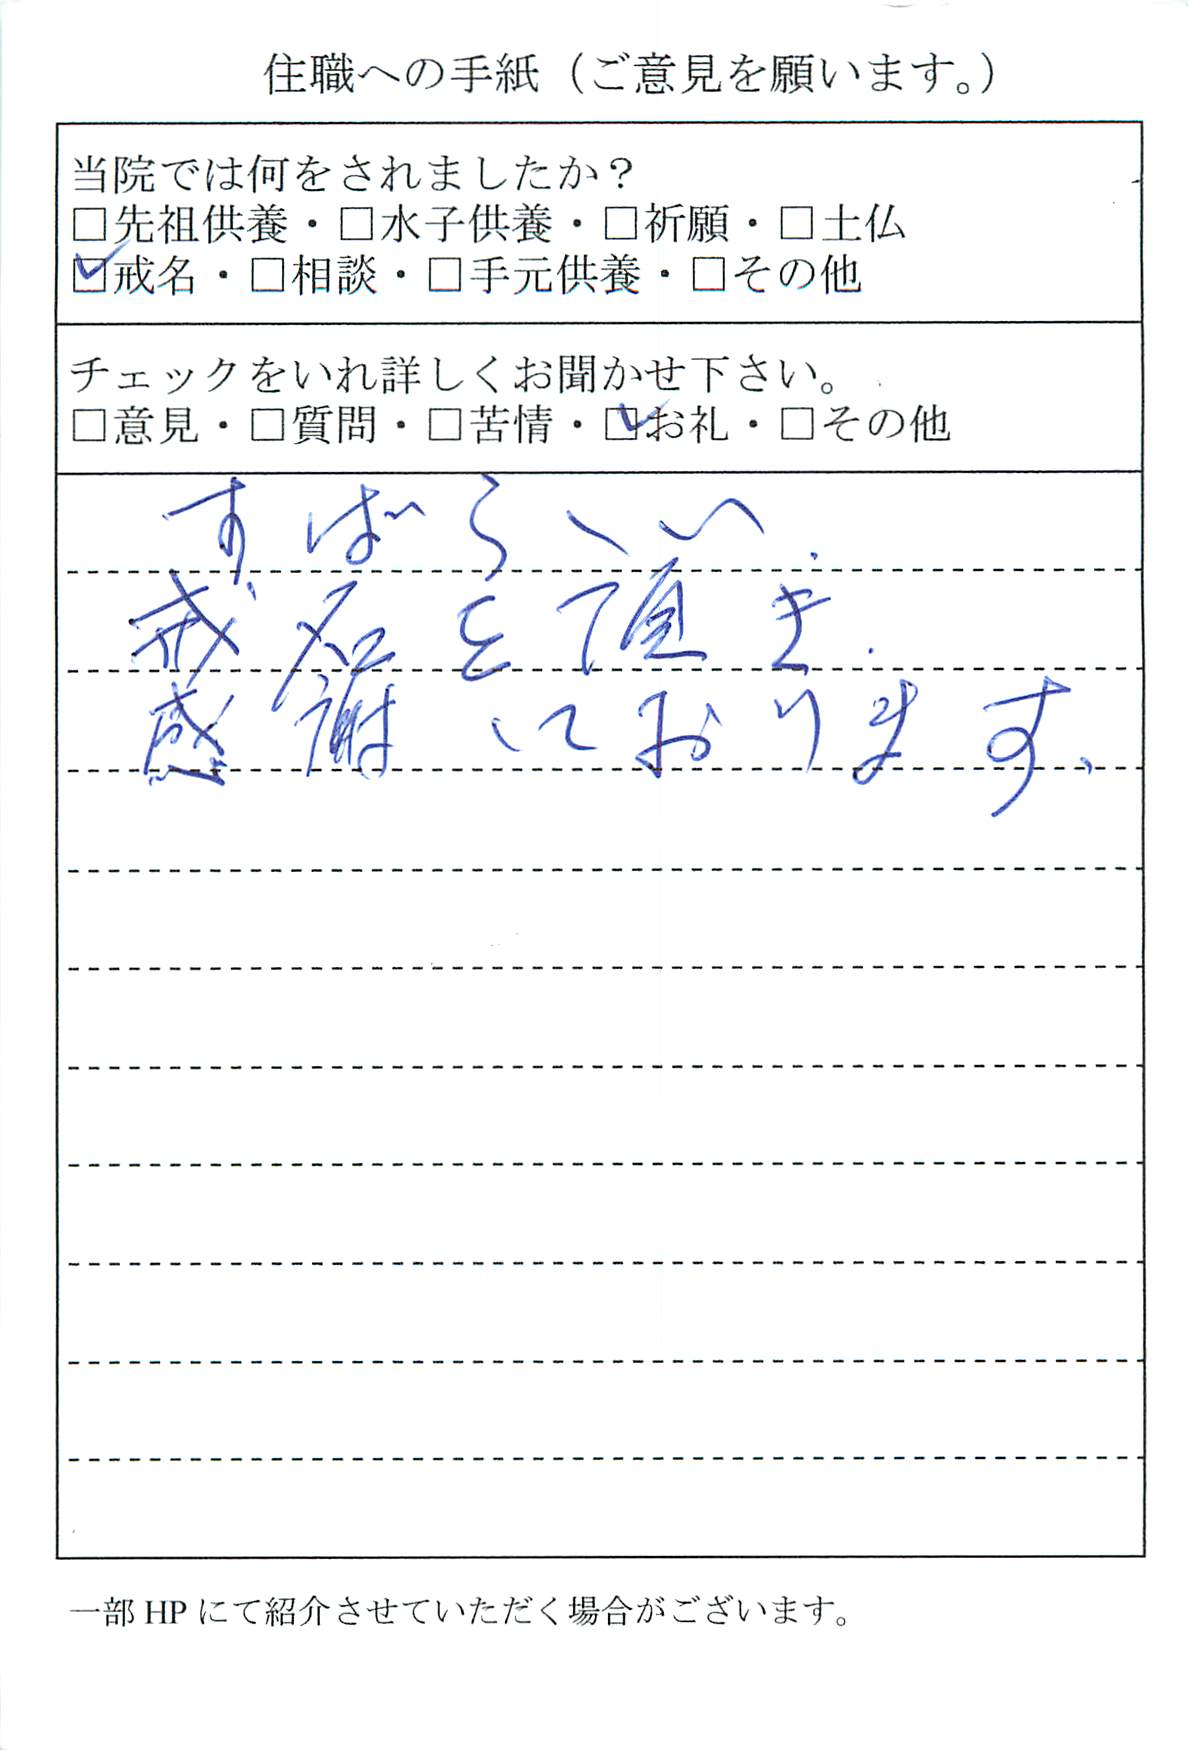 住職への手紙（ご意見を願います。）
当院では何をされましたか？
□先祖供養・□水子供養・□祈願・□土仏
☑戒名・□相談・□手元供養・□その他
チェックをいれ詳しくお聞かせ下さい。
□意見・□質問・□苦情・☑お礼・□その他
すばらしい
戒名を頂き、
感謝しております、
一部 HP にて紹介させていただく場合がございます。